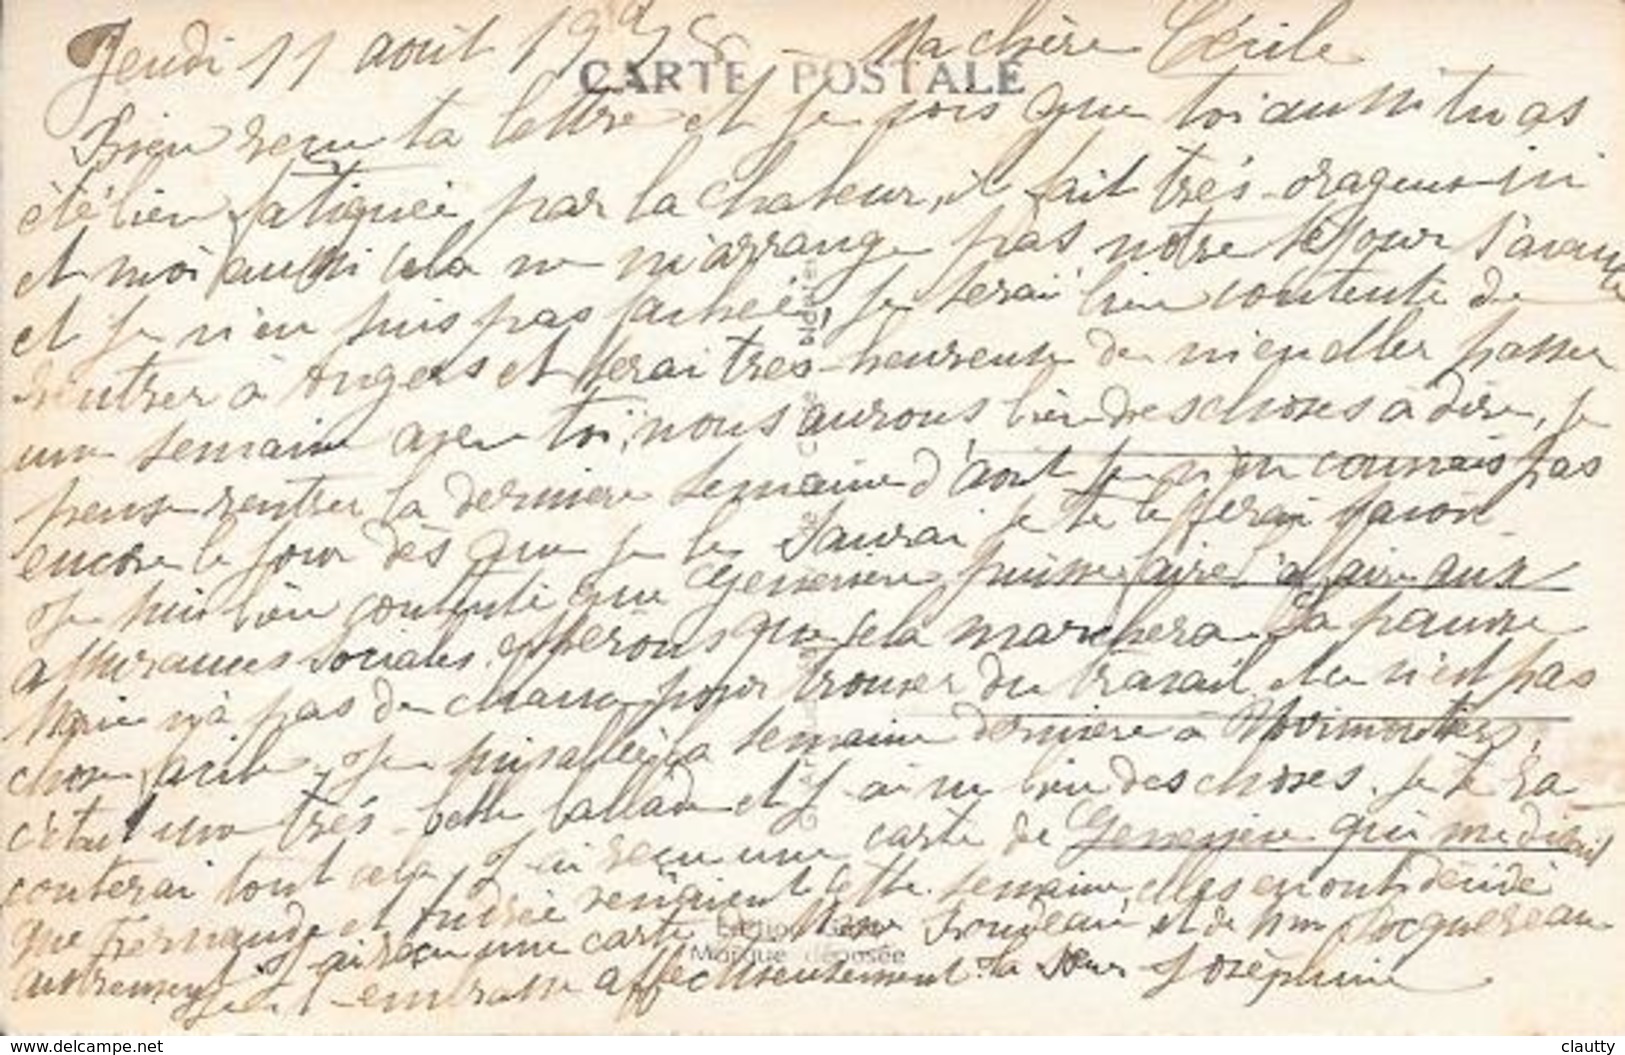 Jeudi 11 août 19 – Ma chère Cécile
CARTE POSTALE
Bien reçu ta lettre et je vois que toi aussi tu as
été bien fatiguée par la chaleur, il fait très orageux ici
et moi aussi cela ne m'arrange pas notre séjour s'avance
et je n'en suis pas fachée, je serai bien contente de
rentrer à Angers et serai très heureuse de m'en aller passer
une semaine avec toi, nous aurons bien des choses à dire, je
pense rentrer la dernière semaine d'août je n'en connais pas
encore le jour dès que je le saurai je te le ferai savoir
Je suis bien contente que Geneviève puisse faire l'affaire aux
assurances sociales. espérons que cela marchera. La pauvre
Marie n'a pas de chance pour trouver du travail, cela n'est pas
chose facile. Je suis allée la semaine dernière à Noirmoutiers,
c'était une très belle ballade et j'ai vu bien des choses. Je te ra
conterai tout cela, J'ai reçu une carte de Geneviève qui me disait
que Fernande et Andrée venaient cette semaine, elles en ont décidé
autrement. J'ai reçu une carte de Mme et de Mme Jacquereau
Je t'embrasse affectueusement ta sœur Joséphine
Edition
Marque déposée
www.delcampe.net
clautty